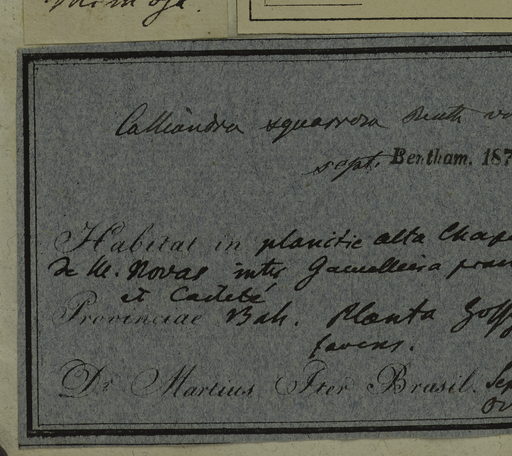 Calliandra squarrosa Benth
sept. Bentham. 187
Habitat in planitie alta Chap
de M. Novas inter Gamelleira
et Caeteté
Provinciae Bah. Planta Goss
favens.
Dr. Martius Iter Brasil. Sep